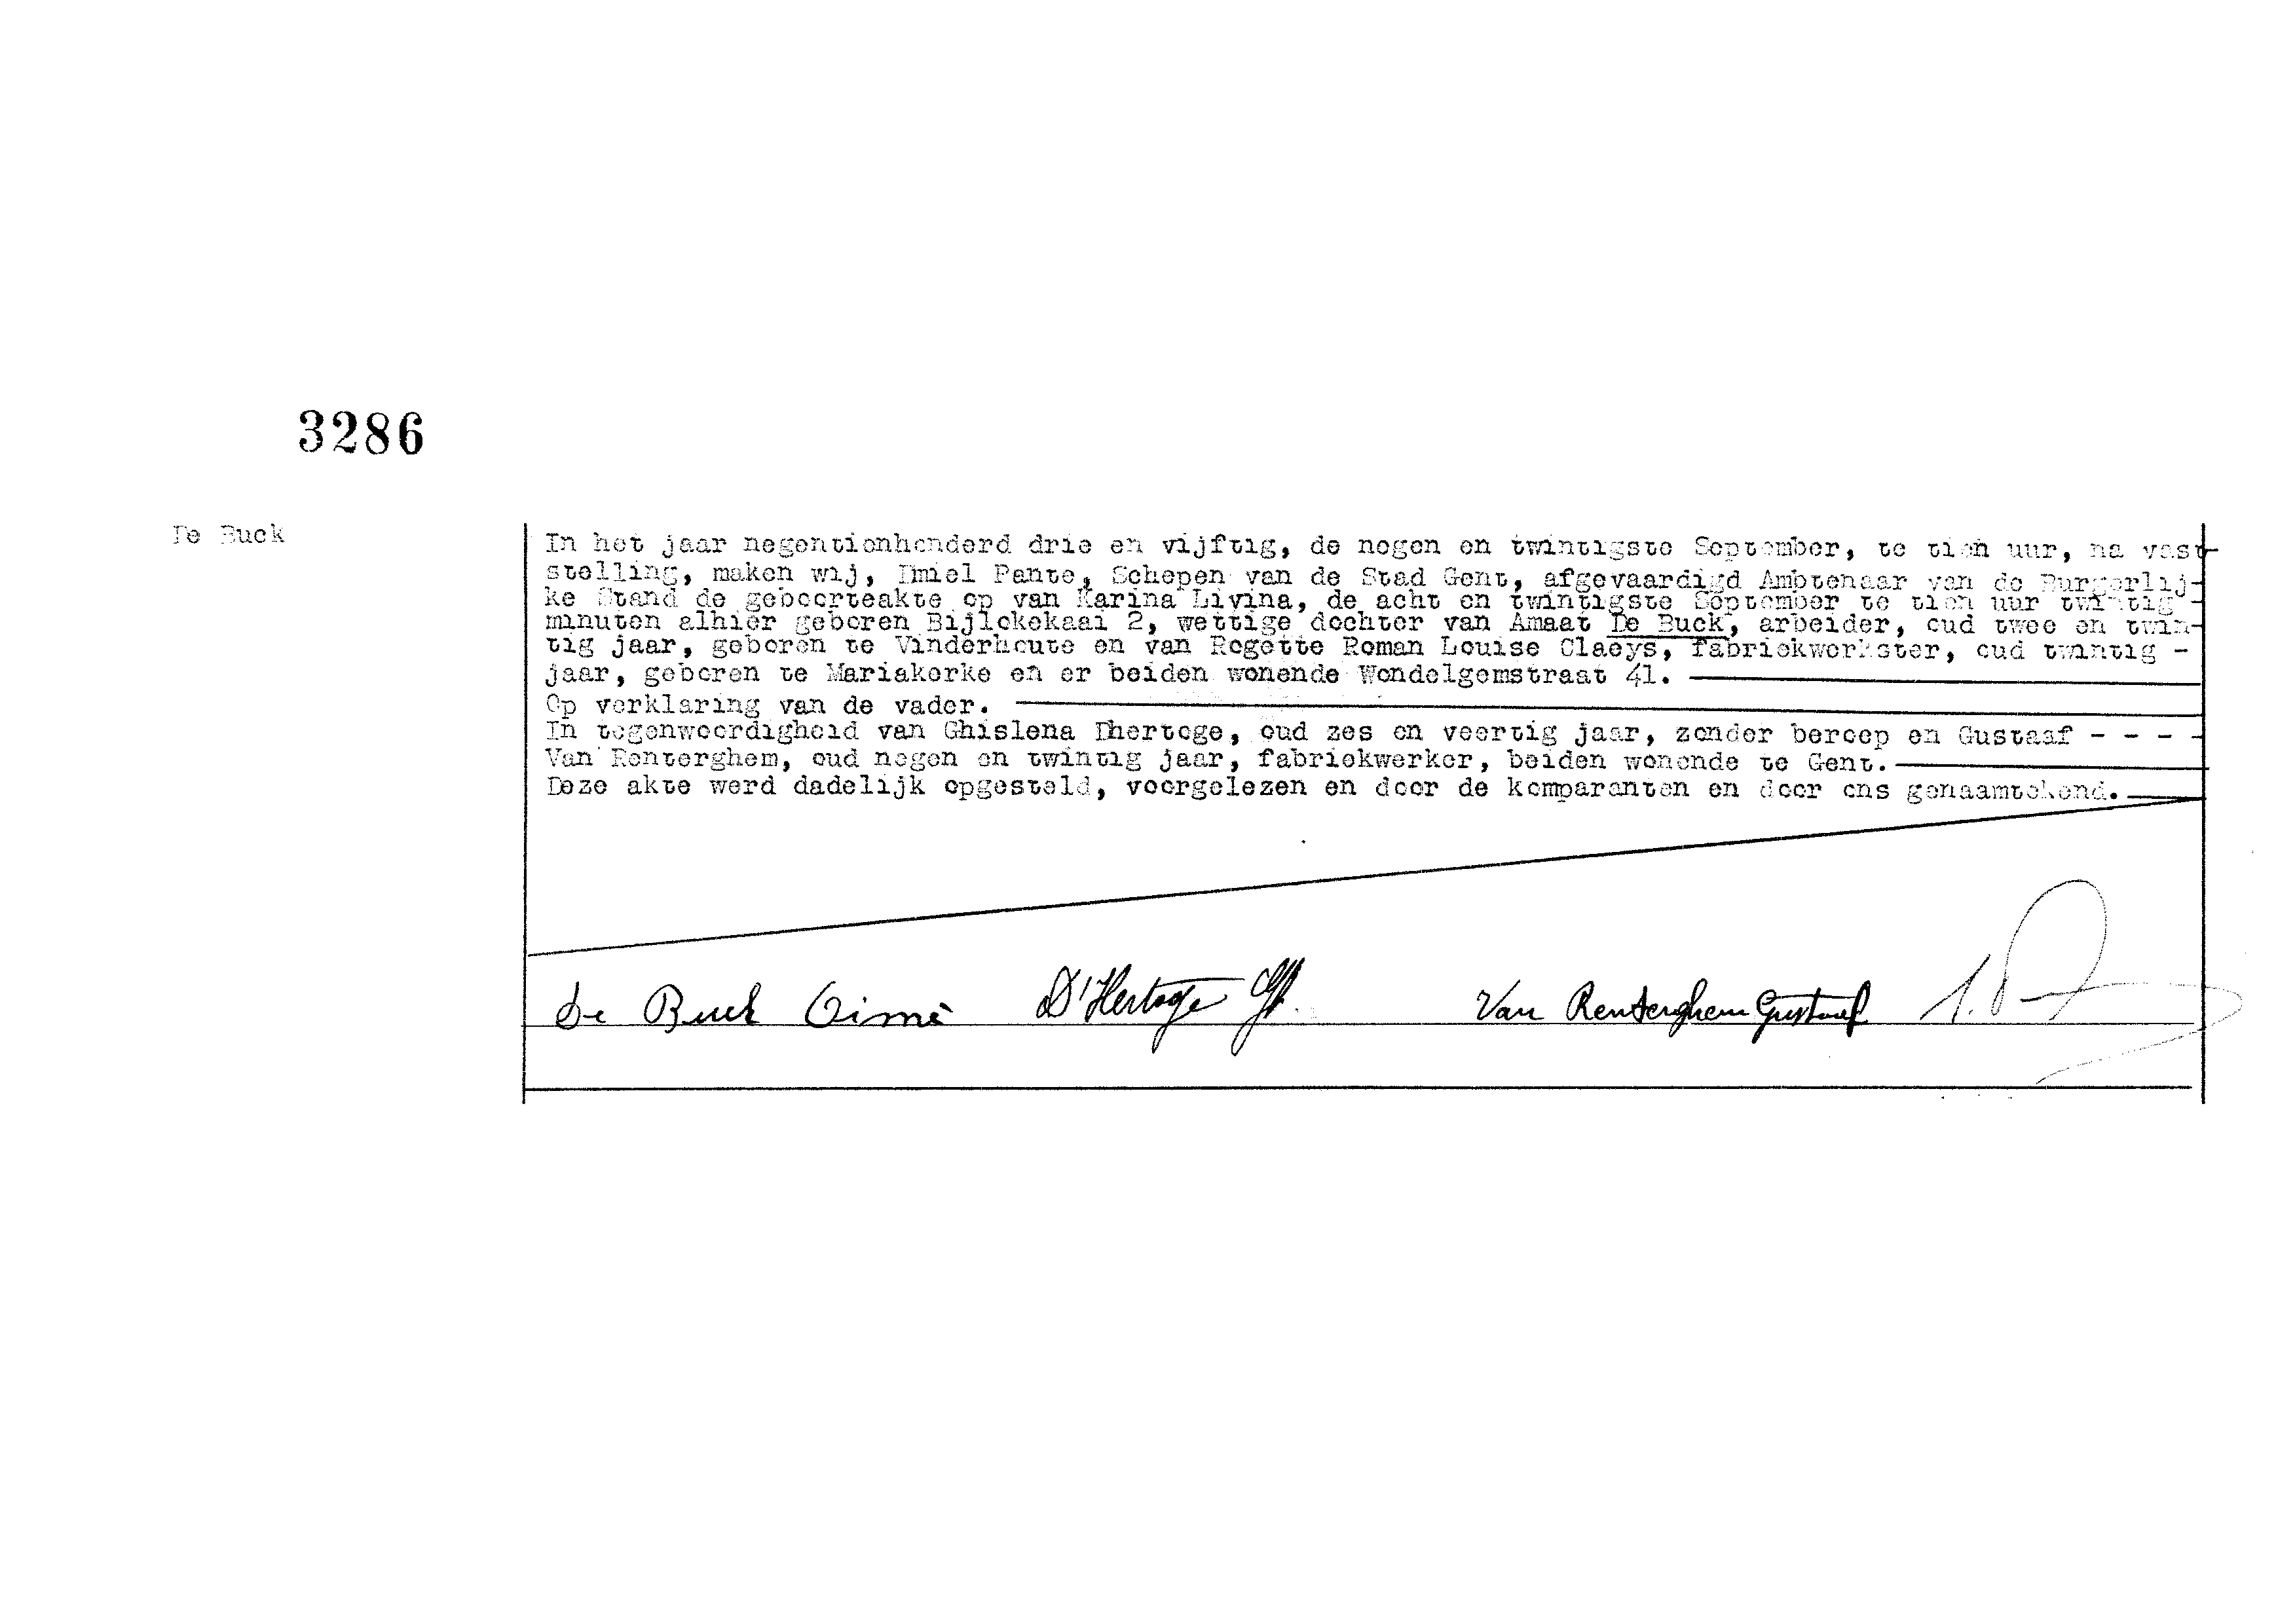 3286
De Buck
In het jaar negentienhonderd drie en vijftig, de negen en twintigste September, te tien uur, na vast-
stelling, maken wij, Emiel Pante, Schepen van de Stad Gent, afgevaardigd Ambtenaar van de Burgerlij-
ke Stand de geboorteakte op van Karina Livina, de acht en twintigste September te tien uur twintig -
minuten alhier geboren Bijlokekaai 2, wettige dochter van Amaat De Buck, arbeider, oud twee en twin-
tig jaar, geboren te Vinderhoute en van Rogette Roman Louise Claeys, fabriekwerkster, oud twintig -
jaar, geboren te Mariakerke en er beiden wonende Wondelgemstraat 41.
Op verklaring van de vader.
In tegenwoordigheid van Ghislena Dhertoge, oud zes en veertig jaar, zonder beroep en Gustaaf - - - -
Van Renterghem, oud negen en twintig jaar, fabriekwerker, beiden wonende te Gent.
Deze akte werd dadelijk opgesteld, voorgelezen en door de komparanten en door ons genaamtekend.
De Buck D'Hertoge Gh. Van Renterghem Gustaaf